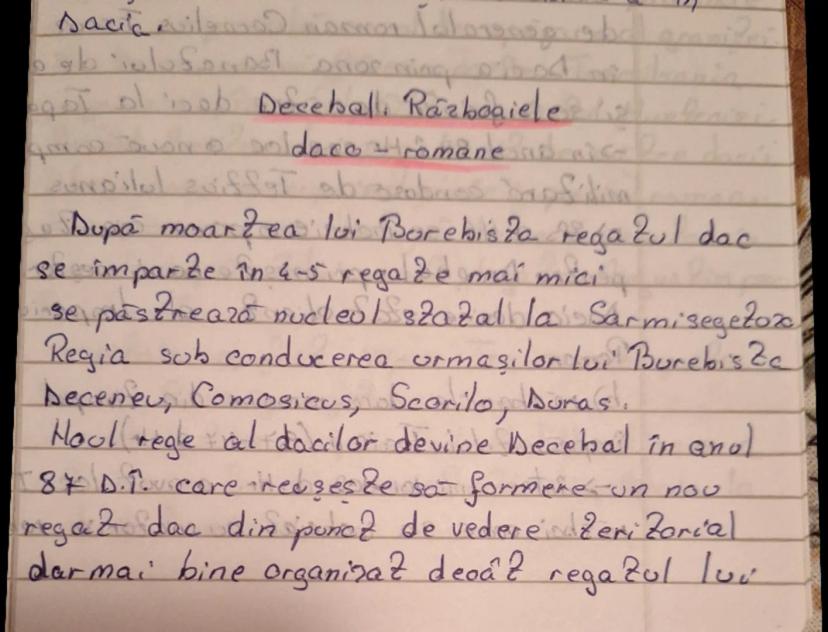 Dacia.
Decebal. Războaiele
daco-romane
După moartea lui Burebista regatul dac
se imparte în 4-5 regate mai mici
se păstrează nucleul statal la Sarmisegetoza
Regia sub conducerea urmașilor lui Burebista
Deceneu, Comosicus, Scorilo, Duras.
Noul rege al dacilor devine Decebal în anul
87 D.Î. care reușește să formeze un nou
regat dac din punct de vedere teritorial
dar mai bine organizat decât regatul lui